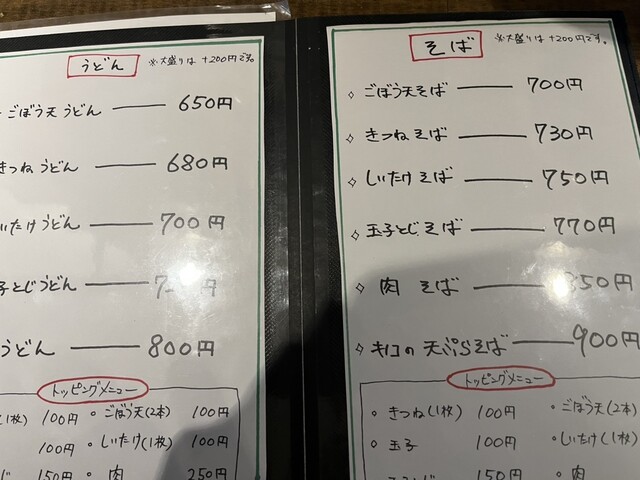 うどん ※大盛りは +200円です。
ごぼう天うどん 650円
きつねうどん 680円
いたけうどん 700円
子とじうどん 円
うどん 800円
トッピングメニュー
(1枚) 100円 ・ごぼう天(2本) 100円
100円 ・しいたけ(1枚) 100円
150円 ・肉 250円
そば ※大盛りは +200円です。
◇ ごぼう天そば 700円
◇ きつねそば 730円
◇ しいたけそば 750円
◇ 玉子とじそば 770円
◇ 肉 そば 50円
◇ キノコの天ぷらそば 900円
トッピングメニュー
・きつね(1枚) 100円 ・ごぼう天(2本)
・玉子 100円 ・しいたけ(1枚)
150円 ・肉